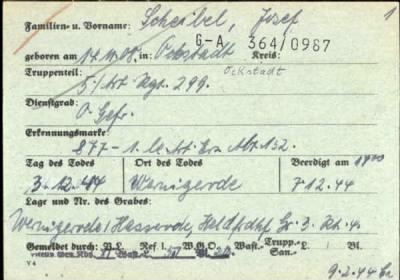 1
Familien- u. Vorname: Scheibel, Josef
G-A 364/0987
geboren am 17.11.08, in: Ockstadt Kreis:
Ockstadt
Truppenteil: 5./Art. Rgt. 299.
Dienstgrad: O. Gefr.
Erkennungsmarke: 877 - 1. le. Art. Ers. Abt. 152.
Tag des Todes Ort des Todes Beerdigt am
3.12.44 Wernigerode 7.12.44
Lage und Nr. des Grabes:
Wernigerode/Hasserode, Heldfrdhf. Gr. 3. Rh. 4.
Gemeldet durch: V.L. Ref W.G.O. Wast. Trupp.- San.- G.V.Bl.
9.2.44